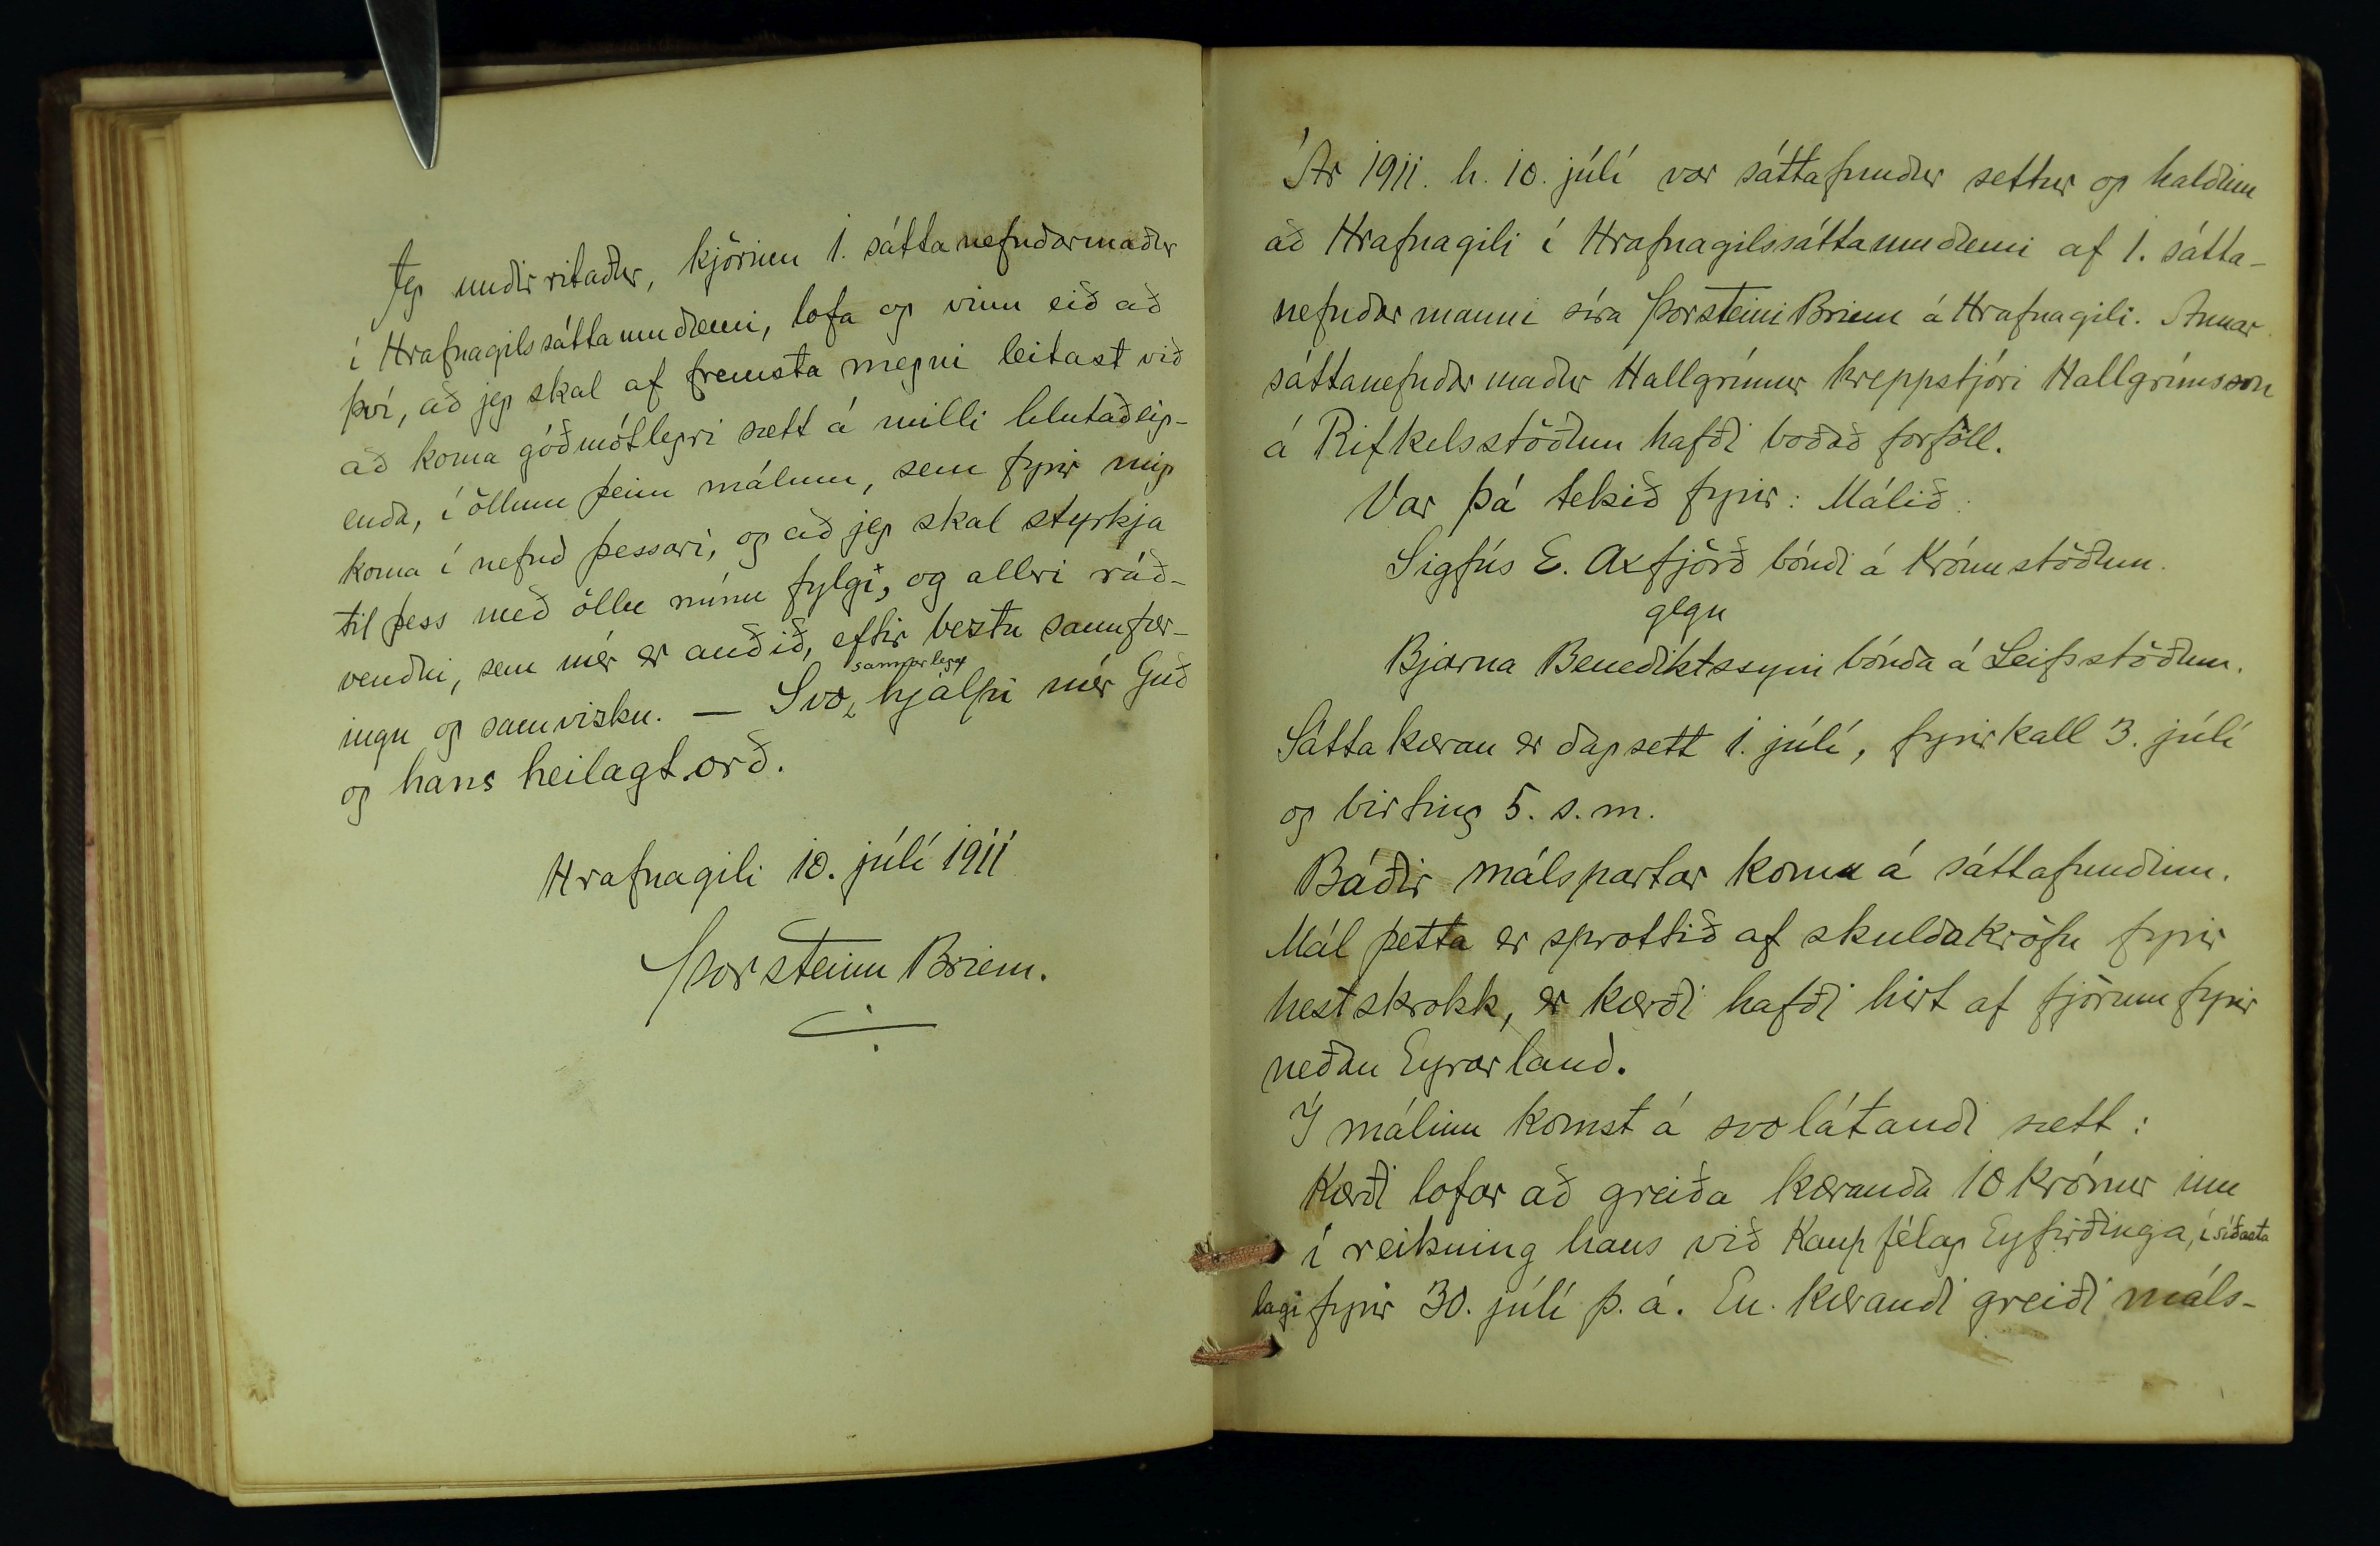 Jeg undirritaður, kjörinn 1. sáttanefndarmaður
í Hrafnagilssáttaumdæmi, lofa og vinn eið að
því, að jeg skal af fremsta megni leitast við
að koma góðmótlegri sætt á milli hlutaðeig-
enda, í öllum þeim málum, sem fyrir mig
koma í nefnd þessari, og að jeg skal styrkja
til þess með öllu mínu fylgi, og allri ráð-
vendni, sem mér er auðið, eftir beztu sannfær-
ingu og samvizku. — Svo sannarlega hjálpi mér Guð
og hans heilagt orð.
Hrafnagili 10. júlí 1911
Þorsteinn Briem.
Ár 1911. h. 10. júlí var sáttafundur settur og haldinn
að Hrafnagili í Hrafnagilssáttaumdæmi af 1. sátta-
nefndarmanni síra Þorsteini Briem á Hrafnagili. Annar
sáttanefndarmaður Hallgrímur hreppstjóri Hallgrímsson
á Rifkelsstöðum hafði boðað forföll.
Var þá tekið fyrir: Málið:
Sigfús E. Axfjörð bóndi á Krónustöðum.
gegn
Bjarna Benediktssyni bónda á Leifsstöðum.
Sáttakæran er dagsett 1. júlí, fyrirkall 3. júlí
og birting 5. s.m.
Báðir málspartar komu á sáttafundinn.
Mál þetta er sprottið af skuldakröfu fyrir
hestskrokk, er kærði hafði hirt af fjörum fyrir
neðan Eyrarland.
Í málinu komst á svolátandi sætt:
Kærði lofar að greiða kæranda 10 krónur inn
í reikning hans við Kaupfélag Eyfirðinga, í síðasta
lagi fyrir 30. júlí þ.á. En kærandi greiði máls-